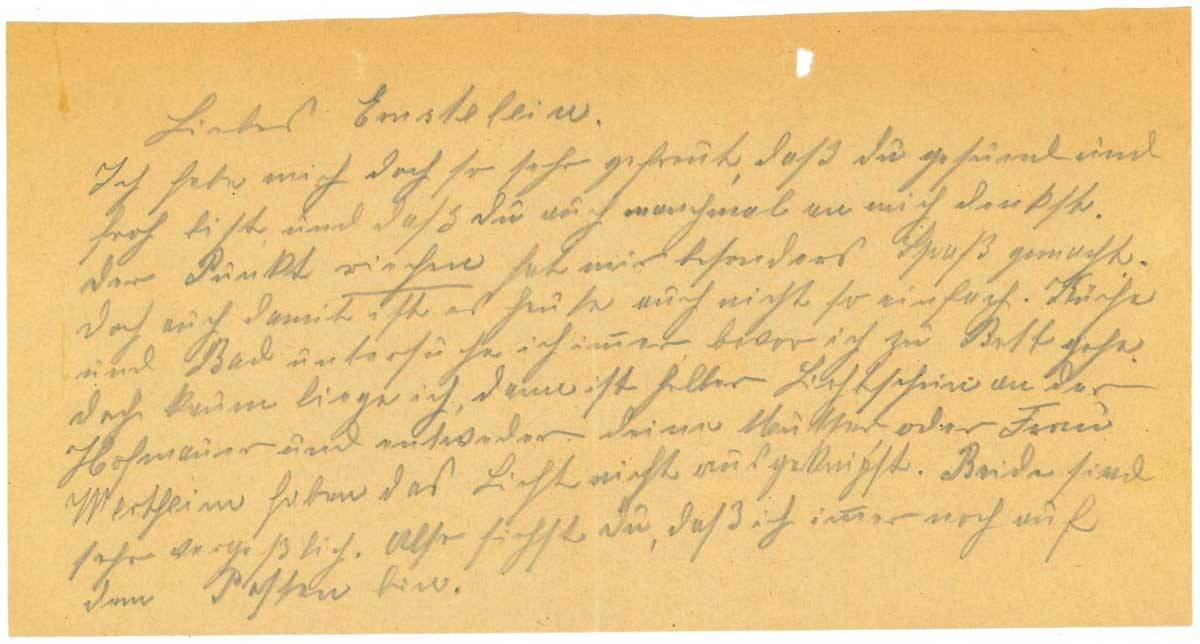 Liebes Ernstelein.
Ich habe mich doch so sehr gefreut, daß du gesund und
froh bist und daß du auch manchmal an mich denkst.
der Punkt riechen hat mir besonders Spaß gemacht.
doch auch damit ist es heute auch nicht so einfach. Küche
und Bad untersuche ich immer, bevor ich zu Bett gehe.
doch kaum liege ich, dann ist heller Lichtschein an der
Hofmauer und entweder deine Mutter oder Frau
Wertheim haben das Licht nicht ausgeknipst. Beide sind
sehr vergeßlich. Also siehst du, daß ich immer noch auf
dem Posten bin.